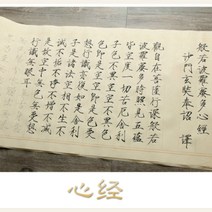 般若波羅蜜多心經
沙門玄奘奉詔 譯
觀自在菩薩行深般若
波羅蜜多時照見五蘊
皆空度一切苦厄舍利
子色不異空空不異色
色即是空空即是色受
想行識亦復如是舍利
子是諸法空相不生不
滅不垢不淨不增不減
是故空中無色無受想
行識無眼
心经